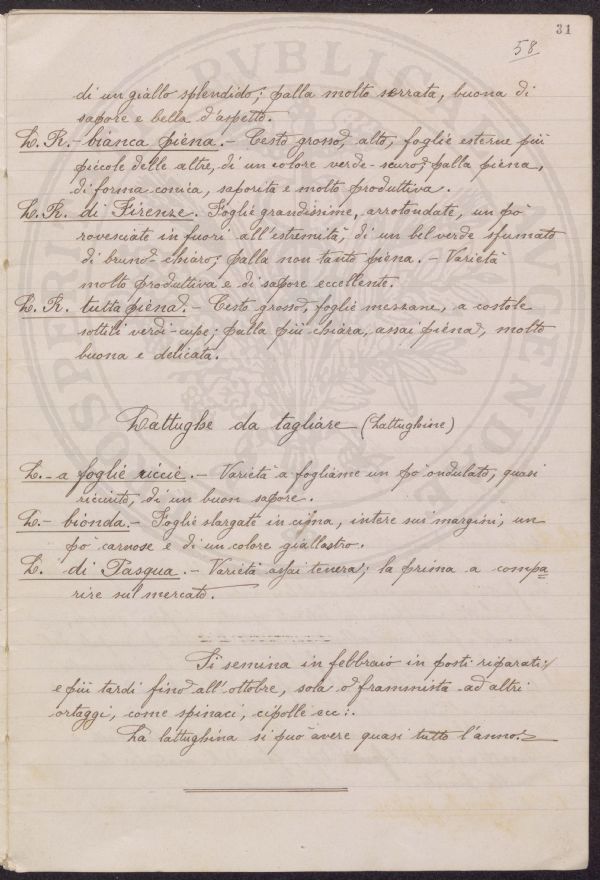 31
58
di un giallo splendido; palla molto serrata, buona di
sapore e bella d'aspetto.
L. R. - bianca piena. - Cesto grosso, alto, foglie esterne più
piccole delle altre, di un colore verde-scuro; palla piena,
di forma conica, saporita e molto produttiva.
L. R. di Firenze. Foglie grandissime, arrotondate, un po'
rovesciate in fuori all'estremità, di un bel verde sfumato
di bruno-chiaro; palla non tanto piena. - Varietà
molto produttiva e di sapore eccellente.
L. R. tutta piena. - Cesto grosso, foglie mezzane, a costole
sottili verdi-cupe; palla più chiara, assai piena, molto
buona e delicata.
Lattughe da tagliare (Lattughine)
L. - a foglie riccie. - Varietà a fogliame un po' ondulato, quasi
ricciuto, di un buon sapore.
L. - bionda. - Foglie slargate in cima, intere sui margini, un
po' carnose e di un colore giallastro.
L. di Pasqua. - Varietà assai tenera; la prima a compa
rire sul mercato.
Si semina in febbraio in posti riparati:
e più tardi fino all'ottobre, sola o frammista ad altri
ortaggi, come spinaci, cipolle ecc:.
La lattughina si può avere quasi tutto l'anno.